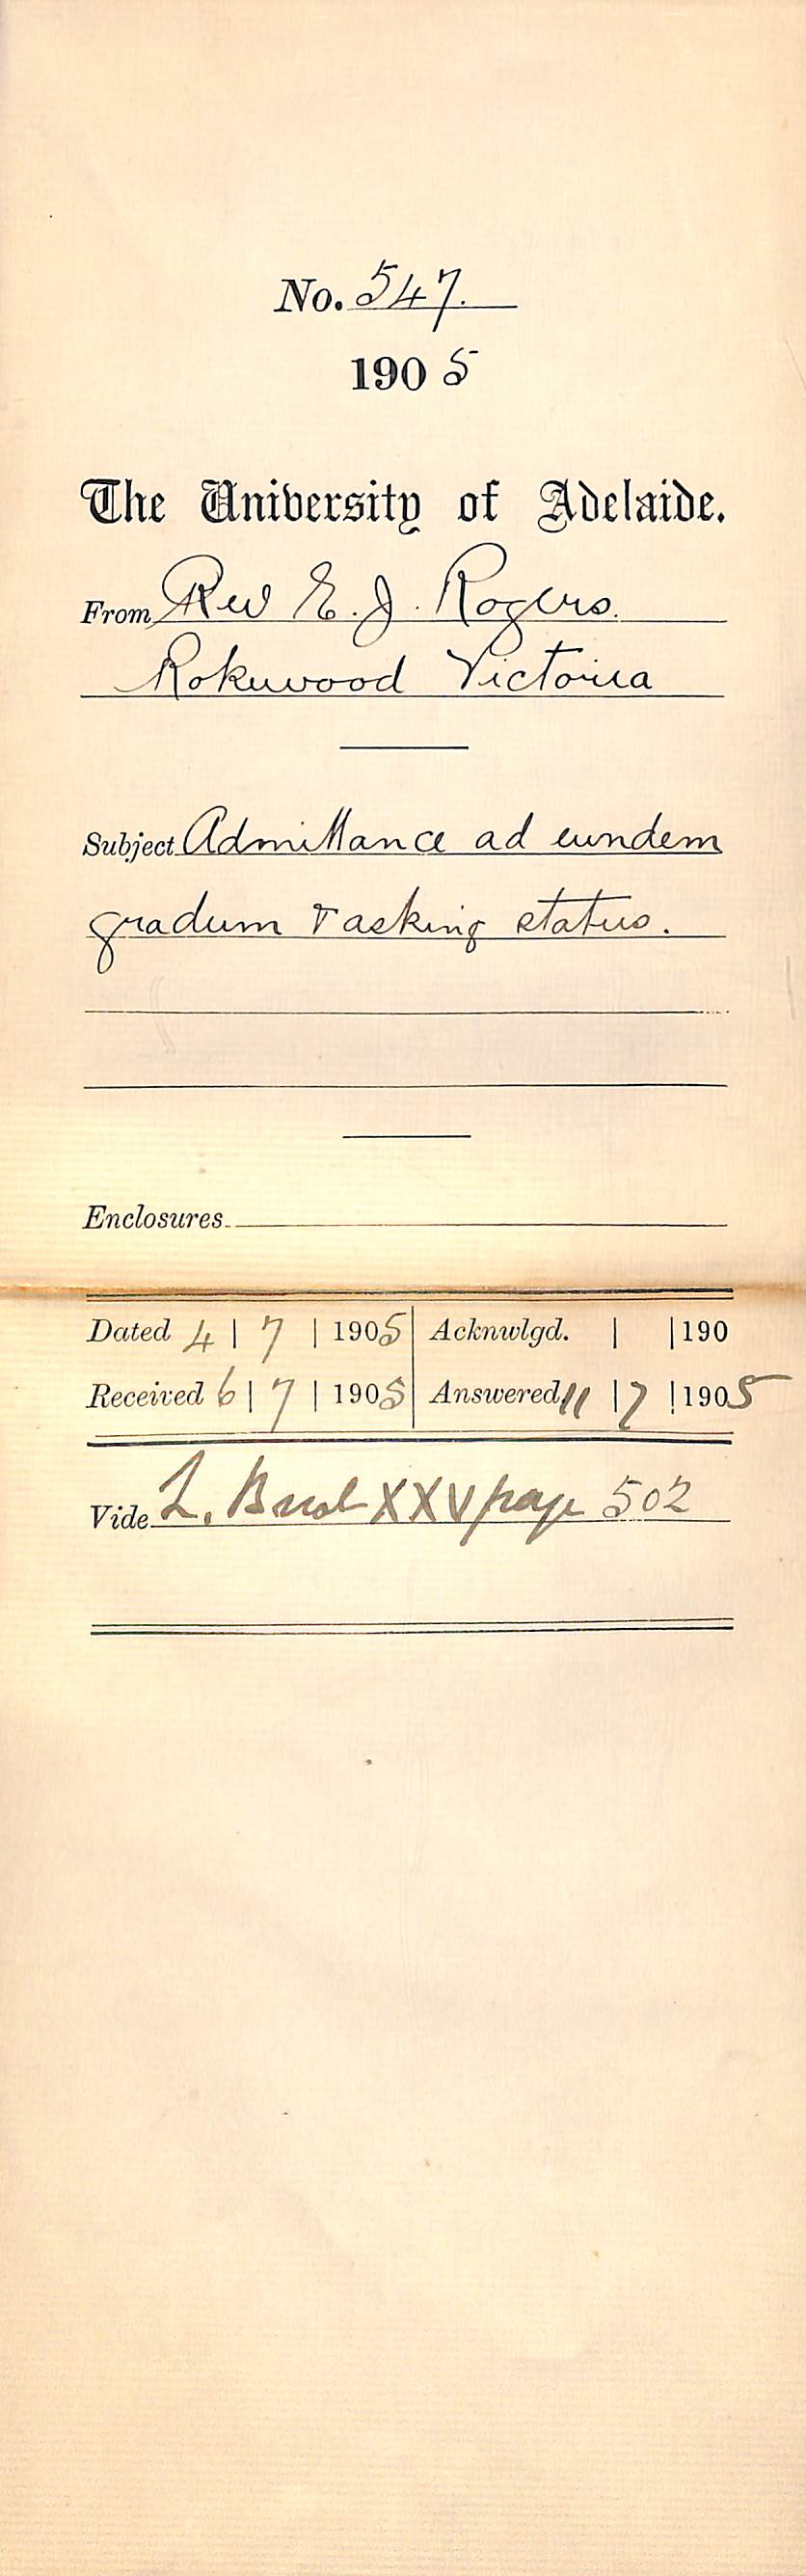 No. 547.
1905
The University of Adelaide.
From Rev E. J. Rogers.
Rokewood Victoria
Subject Admittance ad eundem
gradum & asking status.
Enclosures
Dated 4 | 7 | 1905 Acknwlgd. | | 190
Received 6 | 7 | 1905 Answered 11 | 7 | 1905
Vide L. Book XXV page 502